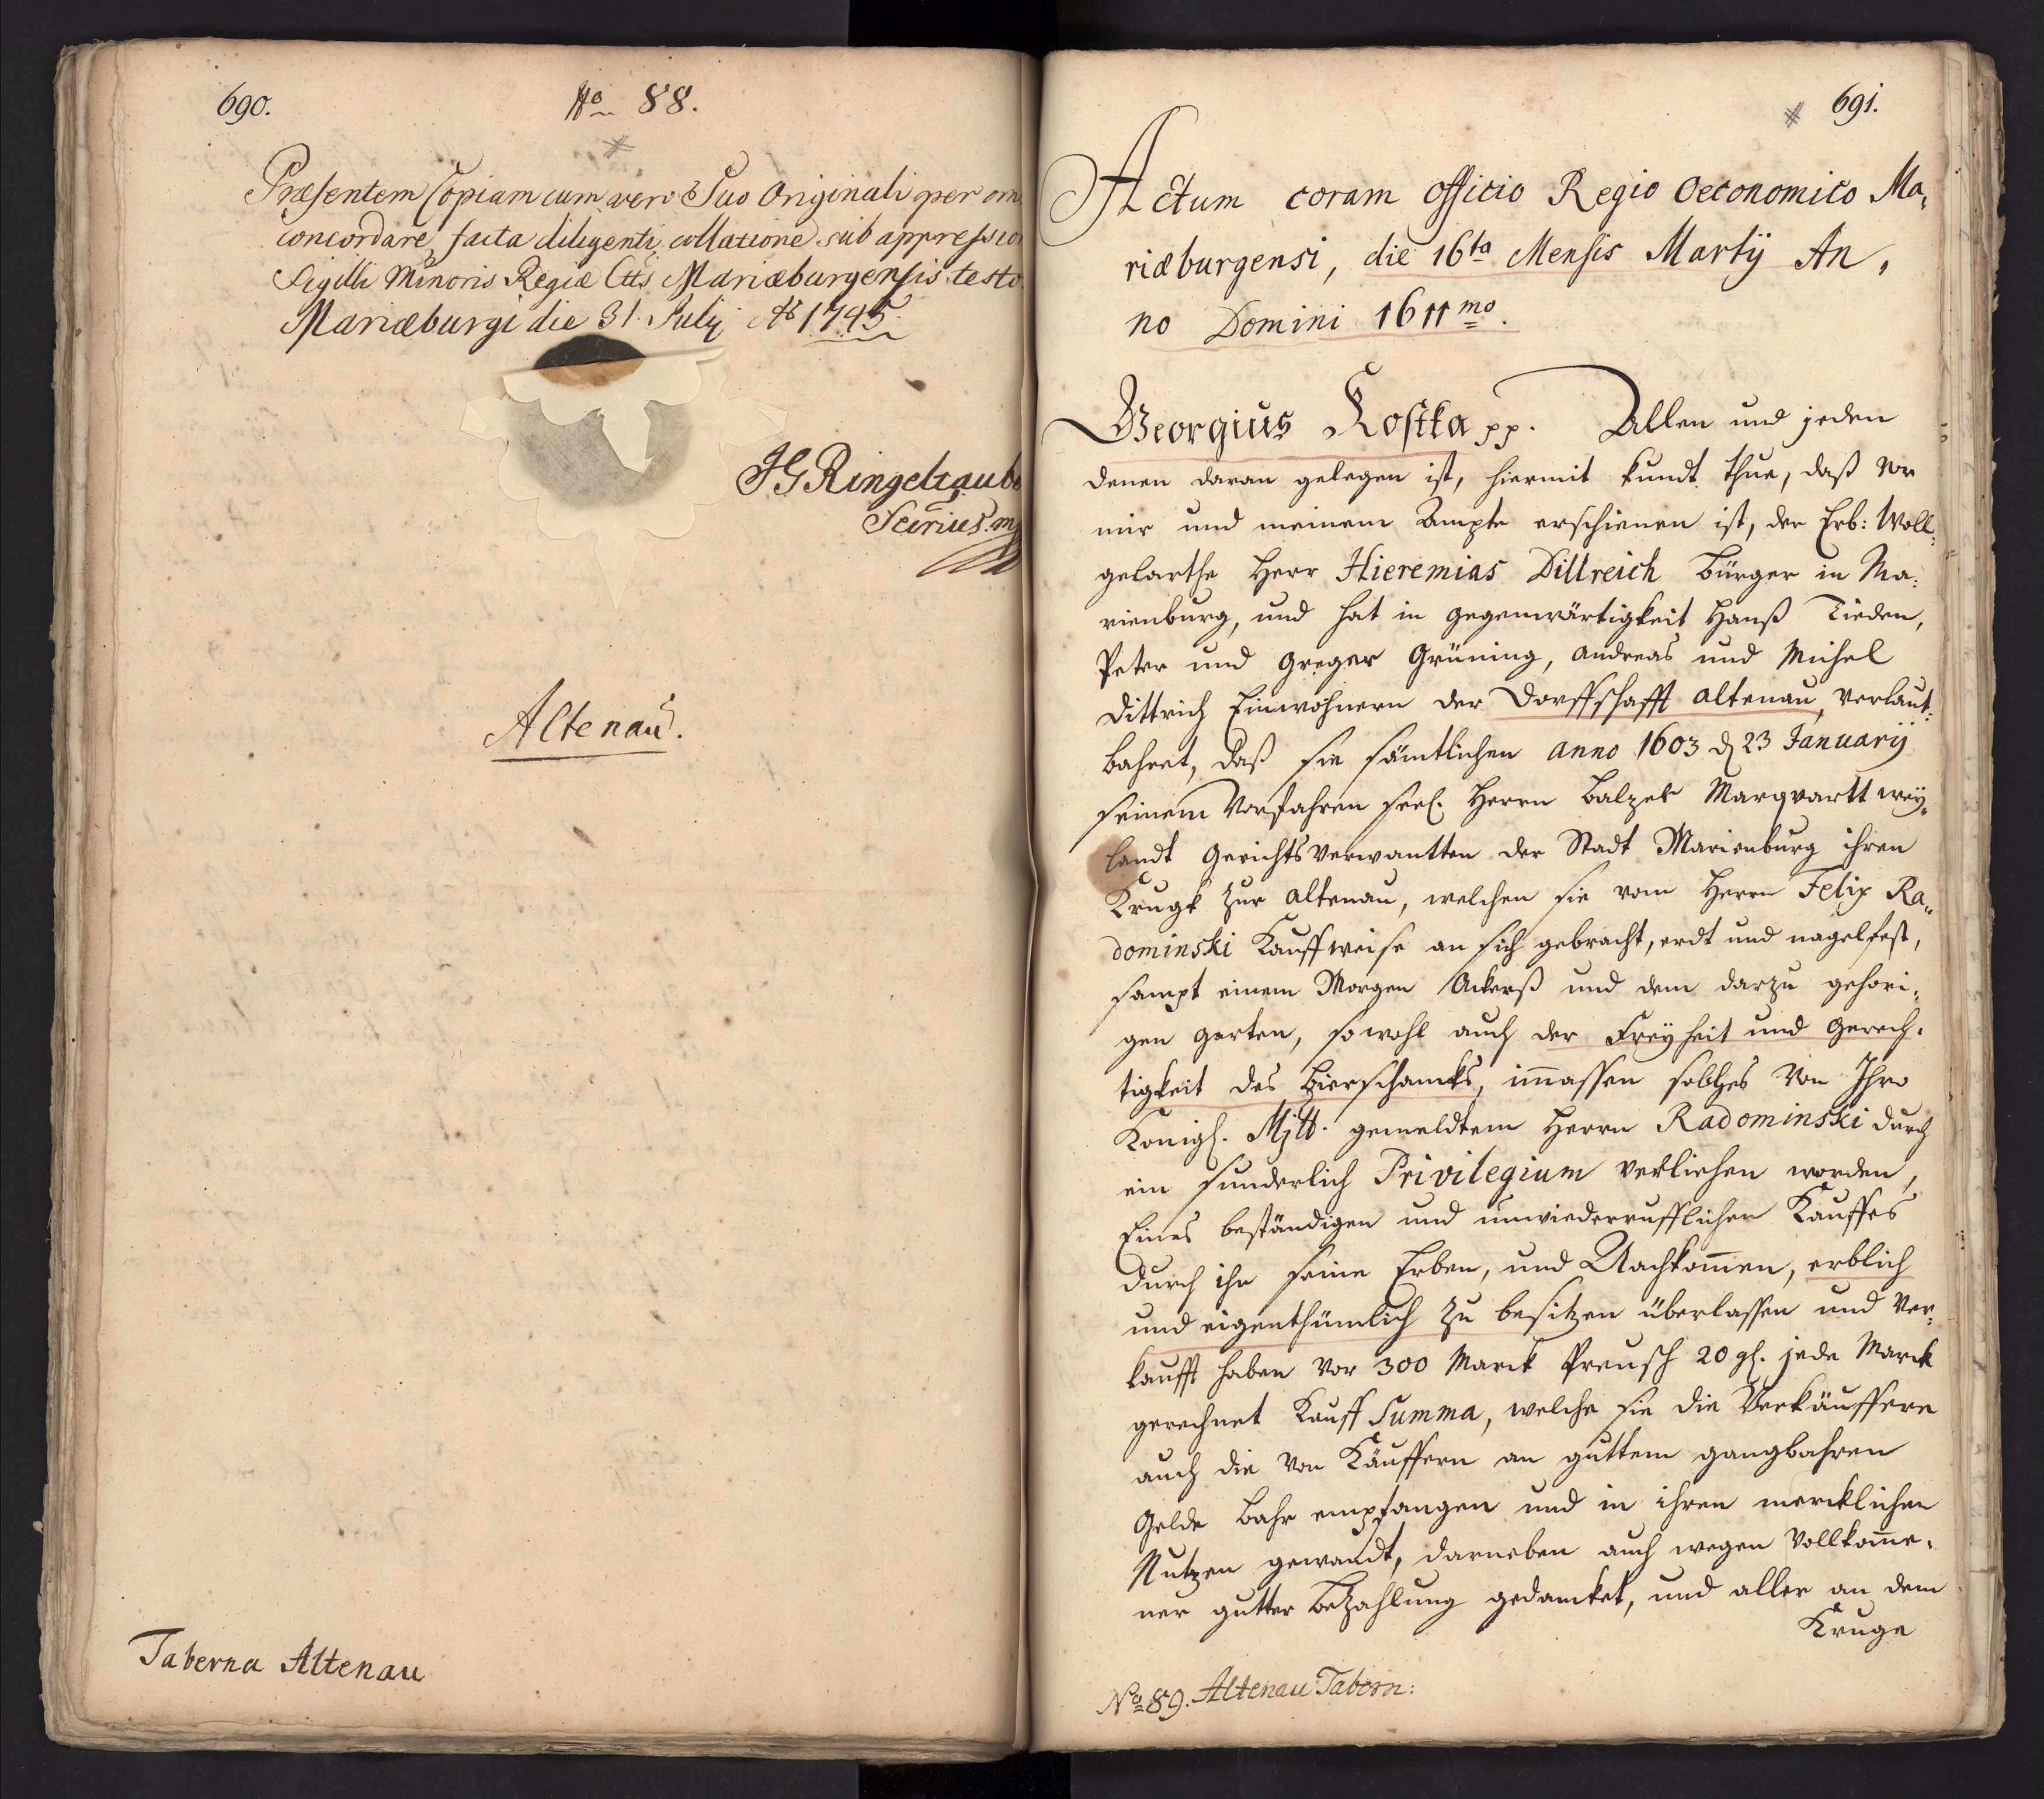 690.
No 88.
Præsentem Copiam cum vero Suo Originali per om
concordare, facta diligenti collatione sub appressio
Sigilli Minoris Regiæ Ctts Mariæburgensis testo.
Mariæburgi die 31. Julij Ao 1745.
JG Ringeltaube
Secrius. mp
Altenau.
Taberna Altenau
691.
Actum coram Officio Regio Oeconomico Ma,
riæburgensi, die 16ta Mensis Martij An,
no Domini 1611mo.
Georgius Kostka pp. Allen und jeden
denen daran gelegen ist, hiermit kundt thue, daß vor
mir und meinem Ampte erschienen ist, der Erb: Woll:
gelarthe Herr Hieremias Dillreich Bürger in Ma:
rienburg, und hat in gegenwärtigkeit Hanß Tieden,
Peter und Greger Grüning, Andreas und Michel
Dittrich Einwohnern der Dorffschafft Altenau, verlaut:
bahret, daß sie sämtlichen Anno 1603 d 23 January
seinem Vorfahren seel. Herrn Balzer Marqvartt wey„
landt Gerichts Verwantten der Stadt Marienburg ihren
Krugk zur Altenau, welchen sie vom Herrn Felix Ra„
dominski Kauffweise an sich gebracht, erdt und nagelfest,
sampt einem Morgen Ackerß und dem darzu gehöri,
gen Garten, sowohl auch der Freyheit und Gerech,
tigkeit des Bierschancks, imassen solches von Ihro
Königl. Mjtt. gemeldtem Herrn Radominski durch
ein sunderlich Privilegium verliehen worden,
Eines beständigen und unwiederrufflichen Kauffes
durch ihr seine Erben, und Nachkomen, erblich
und eigenthümlich zu besitzen überlassen und Ver:
kaufft haben vor 300 Marck Preusch 20 gl. jede Marck
gerechnet Kauff Summa, welche sie die Verkäuffere
auch die von Käuffern an guttem gangbahren
Gelde bahr empfangen und in ihren mercklichen
Nutzen gewandt, darneben auch wegen vollkome,
ner gutter Bezahlung gedancket, und aller an dem
Kruge
No 89. Altenau Tabern: